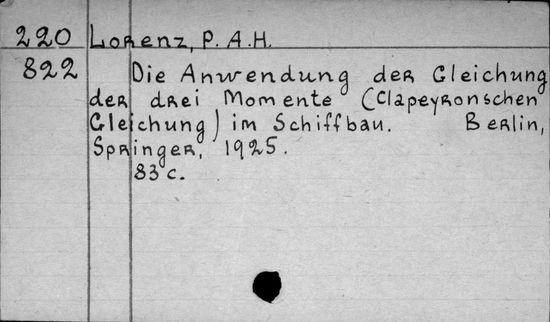 220 Lorenz, P. A. H.
822 Die Anwendung der Gleichung
der drei Momente (Clapeyronschen
Gleichung) im Schiffbau. Berlin,
Springer, 1925.
83 c.